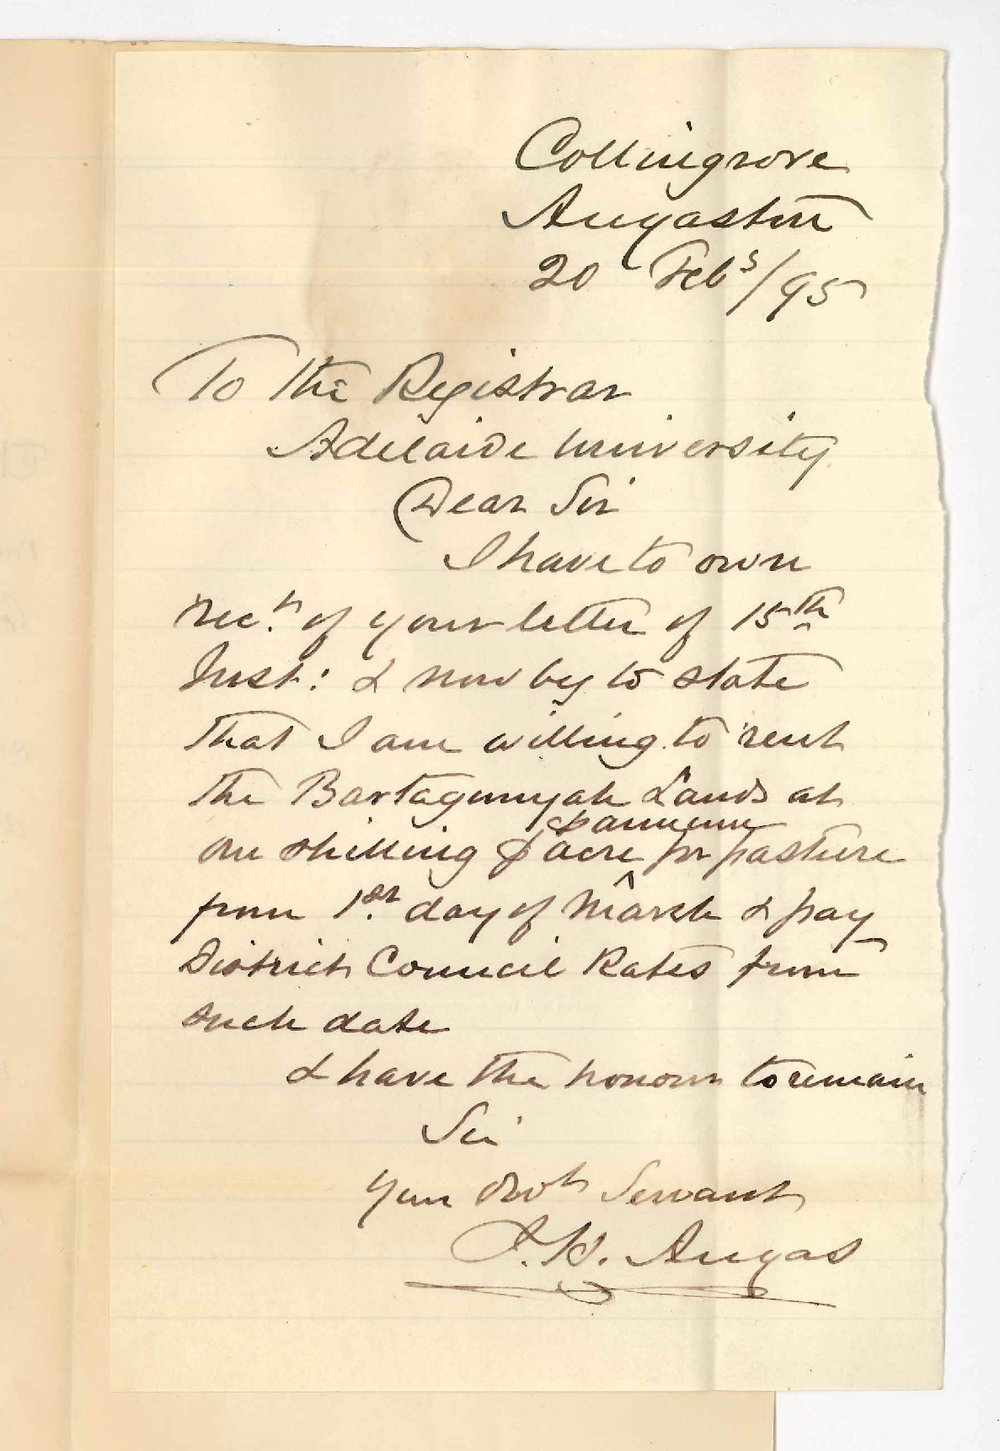 Collingrove
Angaston
20 Feby/95
To The Registrar
Adelaide University
Dear Sir
I have to own
rect. of your letter of 15th
Inst: & now beg to state
that I am willing to rent
the Bartagunyah Lands at
p annum
one shilling p acre for pasture
from 1st. day of March & pay
District Council Rates from
such date
I have the honour to remain
Sir
Your Obt Servant
J. H. Angas